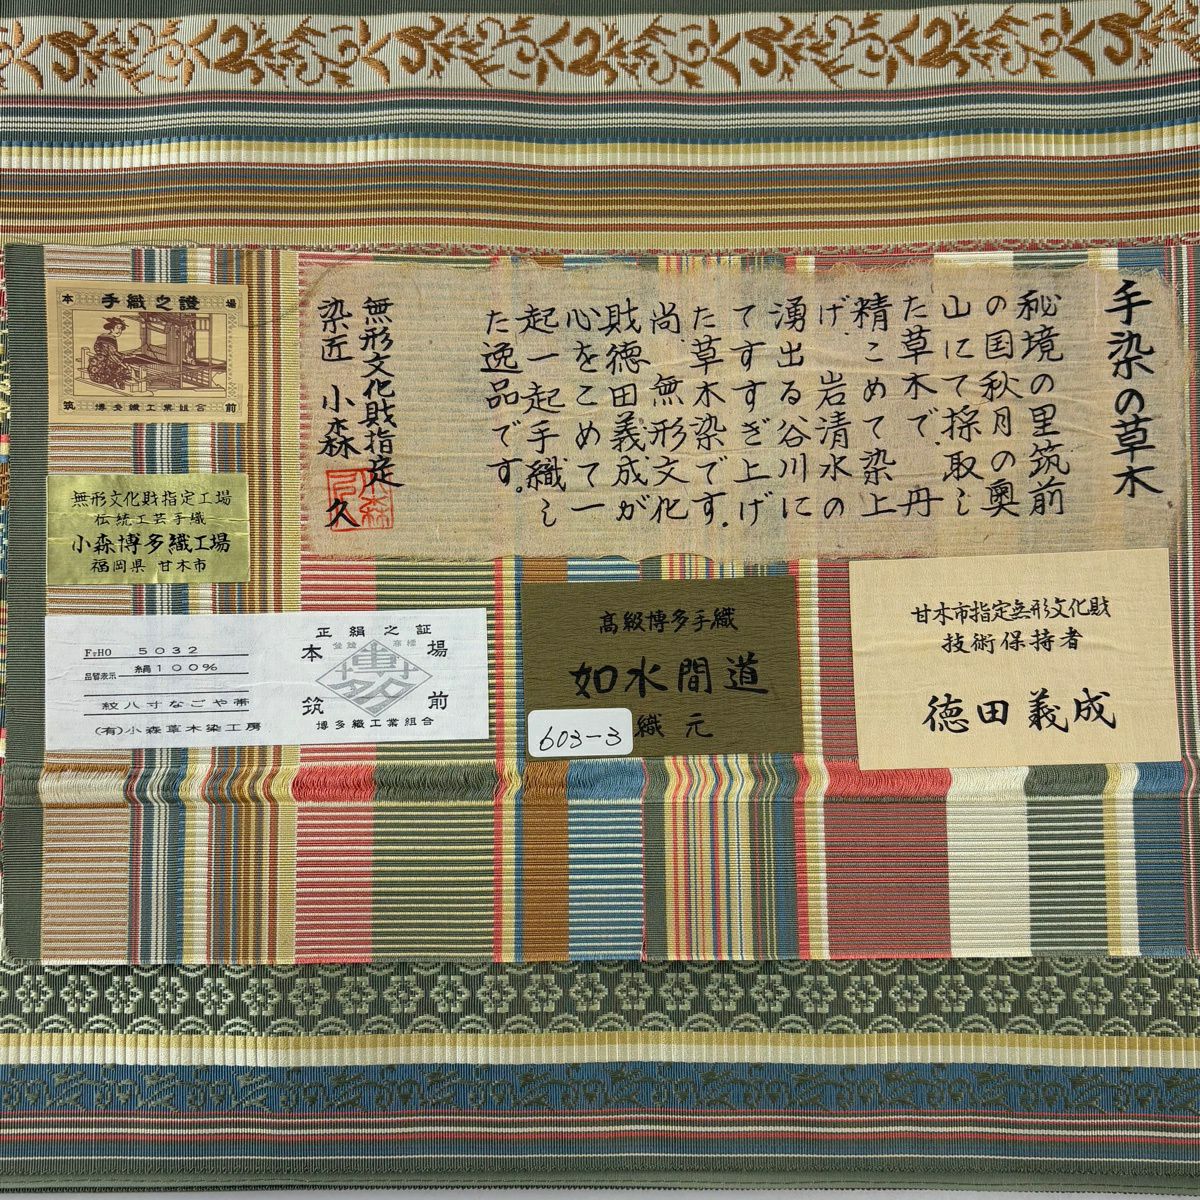 手染の草木
秘境の里筑前
の国秋月の奥
山にて採取し
た草木で、丹
精こめて染上
げ、岩清水の
湧出る谷川に
てすすぎ上げ
た草木染です。
尚、無形文化
財徳田義成が
心をこめて一
起一起手織し
た逸品です。
無形文化財指定
染匠 小森 久
本場
手織之證
筑前
博多織工業組合
無形文化財指定工場
伝統工芸手織
小森博多織工場
福岡県 甘木市
FTHO 5032
品質表示 絹100%
紋八寸なごや帯
(有)小森草木染工房
正絹之証
本場
登録 商標
博多
筑前
博多織工業組合
高級博多手織
如水間道
織元
603-3
甘木市指定無形文化財
技術保持者
徳田義成